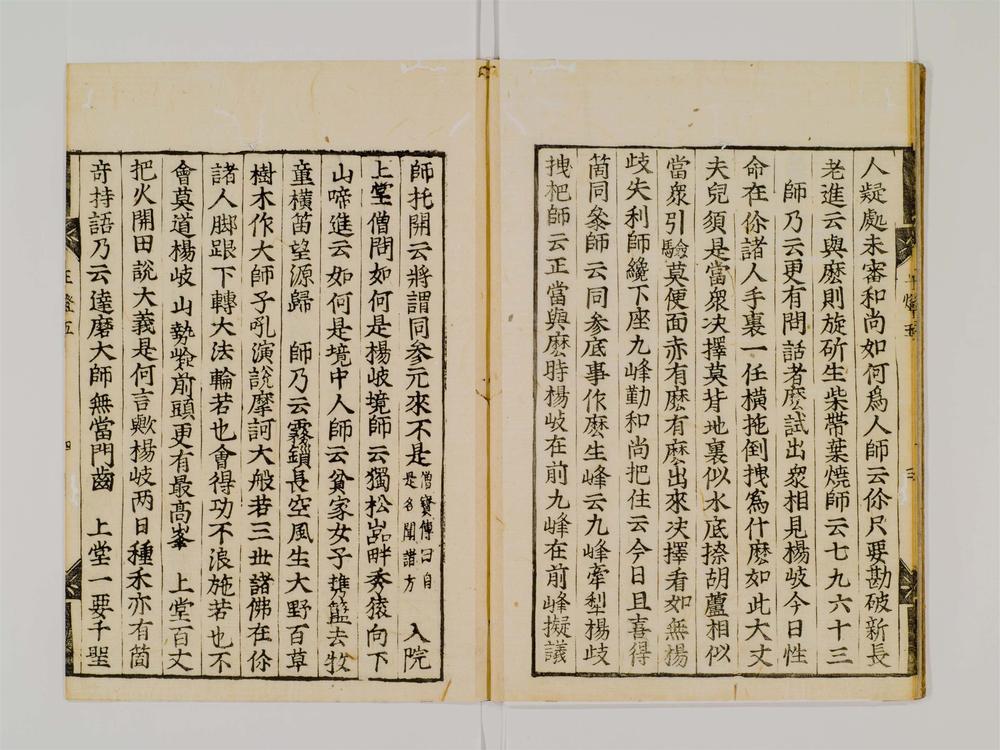 人疑處未審和尚如何爲人師云你只要勘破新長
老進云與麽則旋斫生柴帶葉燒師云七九六十三
師乃云更有問話者麽試出衆相見楊岐今日性
命在你諸人手裏一任橫拖倒拽爲什麽如此大丈
夫兒須是當衆决擇莫背地裏似水底捺胡蘆相似
當衆引驗莫便面赤有麽有麽出來决擇看如無楊
岐失利師纔下座九峰勤和尚把住云今日且喜得
箇同叅師云同参底事作麽生峰云九峰牽犁楊歧
拽杷師云正當與麽時楊岐在前九峰在前峰擬議
師托開云將謂同参元來不是僧寶傳曰自是名聞諸方 入院
上堂僧問如何是楊岐境師云獨松嵓畔秀猿向下
山啼進云如何是境中人師云貧家女子㩦籃去牧
童橫笛望源歸 師乃云霧鎖長空風生大野百草
樹木作大師子吼演說摩訶大般若三世諸佛在你
諸人脚跟下轉大法輪若也會得功不浪施若也不
會莫道楊岐山勢嶮前頭更有最高峯 上堂百丈
把火開田說大義是何言歟楊岐两日種禾亦有箇
竒持語乃云達磨大師無當門齒 上堂一要千聖
正燈五
四
三